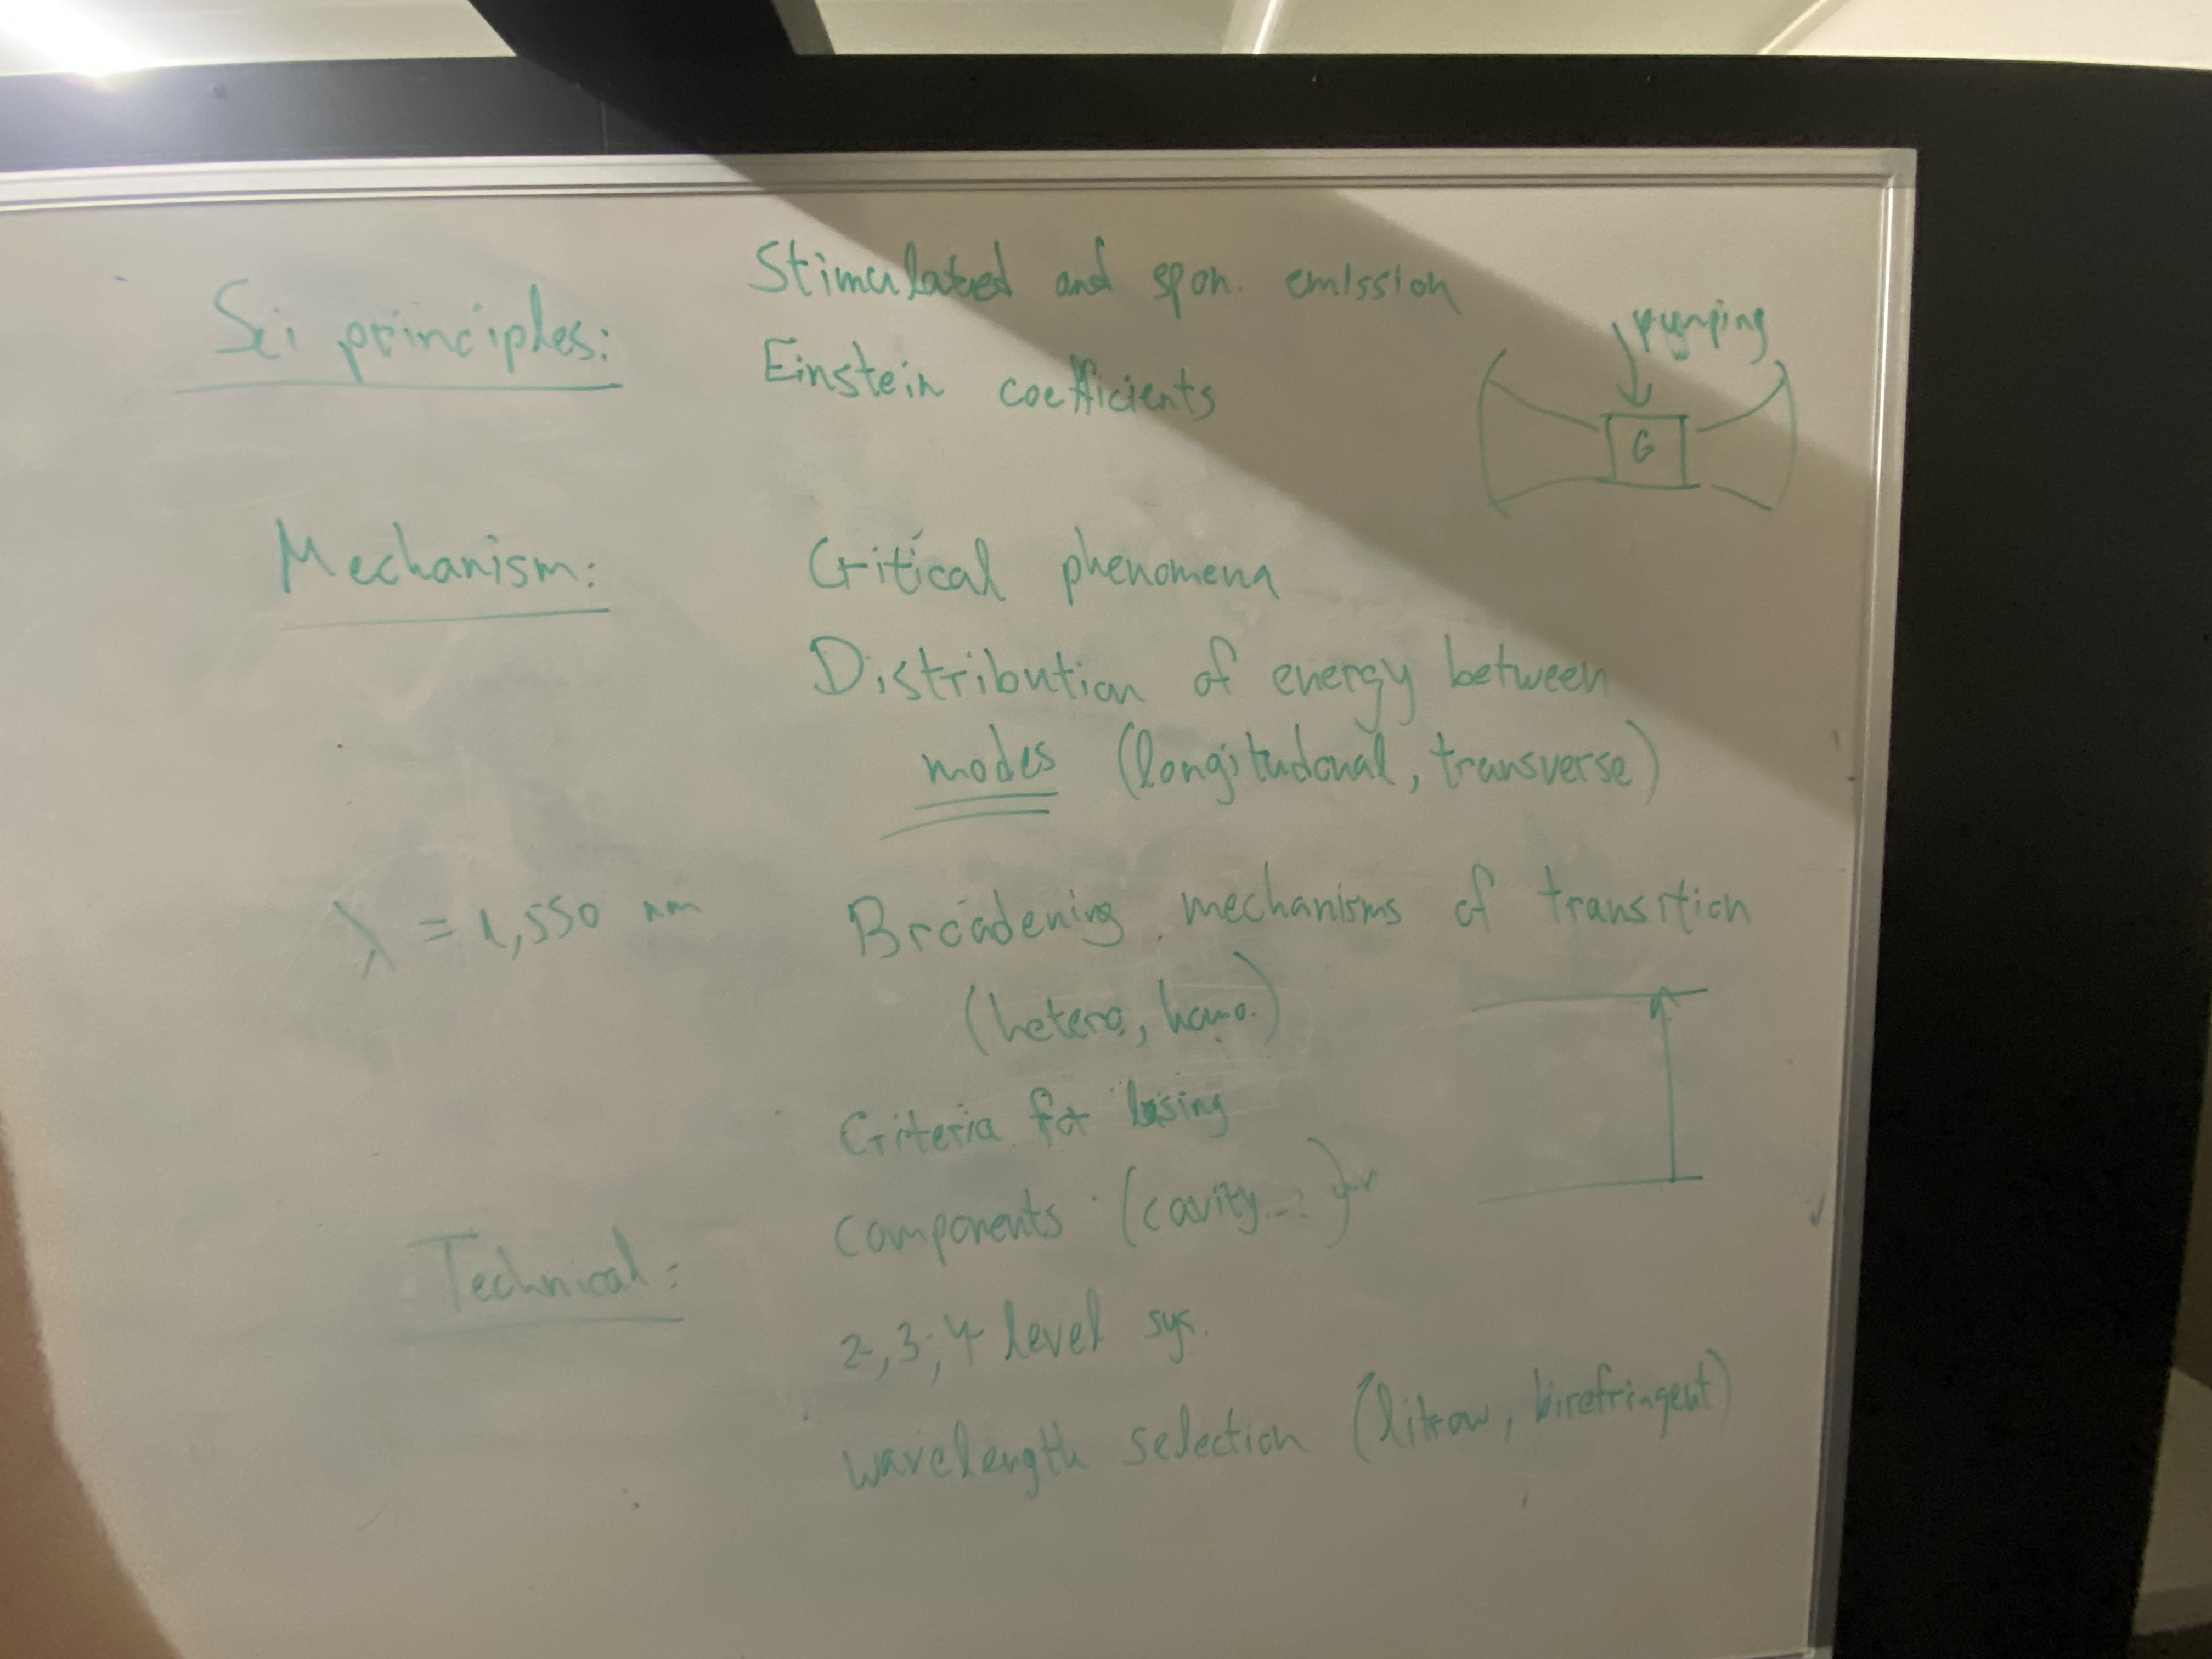 Sci principles:
Stimulated and spon. emission
Einstein coefficients
pumping
G
Mechanism:
Critical phenomena
Distribution of energy between
modes (longitudonal, transverse)
λ = 1,550 nm
Broadening mechanisms of transition
(hetero, homo.)
Criteria for lasing
Technical:
components (cavity...)
2,3,4 level sys.
wavelength selection (litrow, birefringent)